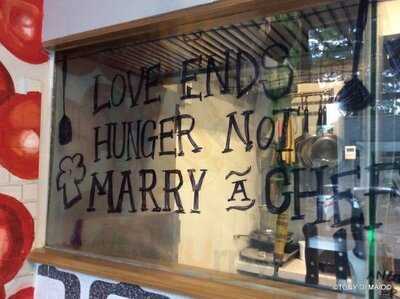 LOVE ENDS
HUNGER NOT
MARRY A CHEF
©TOBY DI MAIOO